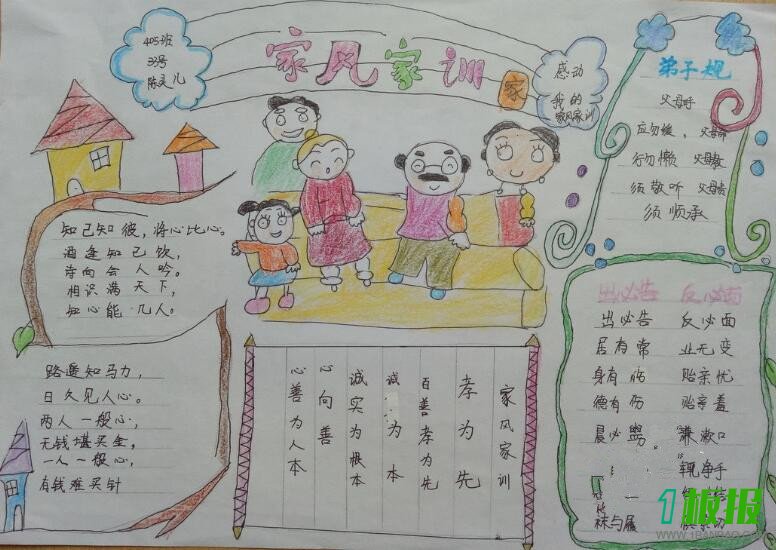 405班
33号
陈灵儿
家风家训
家
感动
我的
家风家训
弟子规
父母呼
应勿缓，父母命
行勿懒 父母教
须敬听 父母责
须顺承
知己知彼，将心比心。
酒逢知己饮，
诗向会人吟。
相识满天下，
知心能几人。
路遥知马力，
日久见人心。
两人一般心，
无钱堪买金，
一人一般心，
有钱难买针
家风家训
孝为先
百善孝为先
诚为本
诚实为根本
心向善
心善为人本
出必告 反必面
出必告 反必面
居有常 业无变
身有伤 贻亲忧
德有伤 贻亲羞
晨必盥 兼漱口
辄净手
袜与履
1板报
WWW.1BANBAO.COM